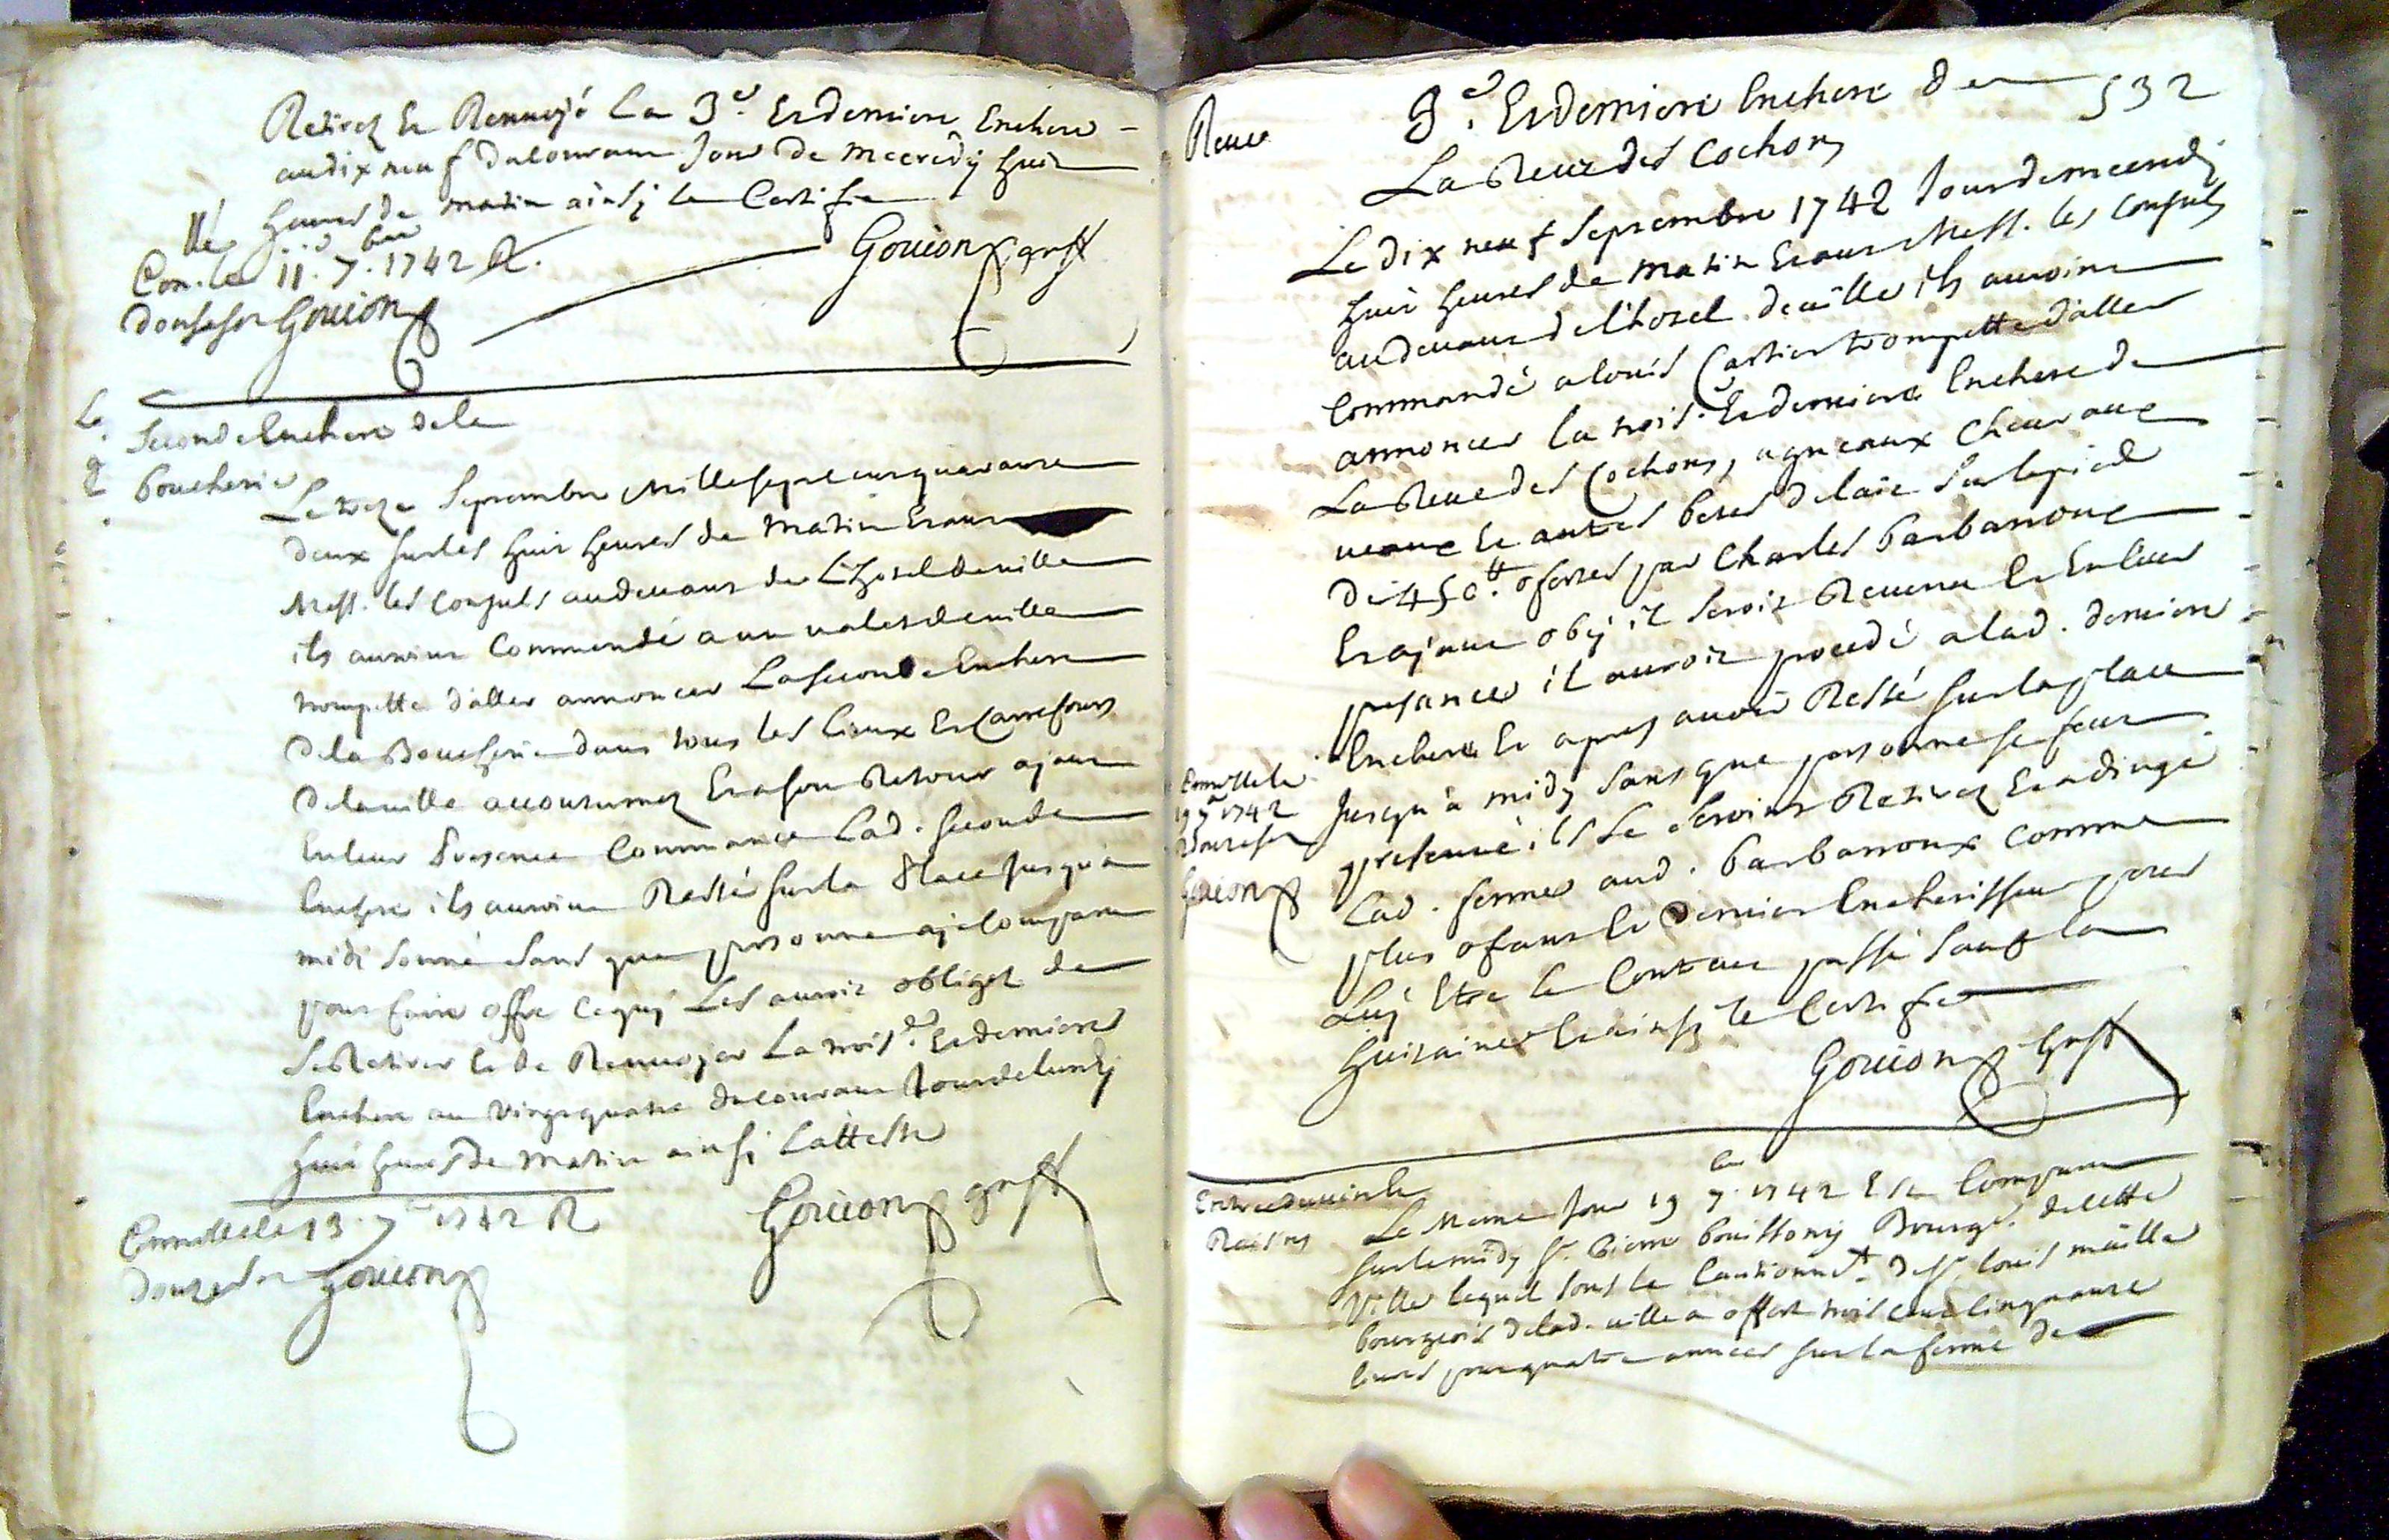 Retirez et Renvoyé La 3.e Et derniere Enchere
au dix neuf du courant Jour de mecredy huit
heures de matin ainsi le Certifie
Con.lé le 11. 7.bre 1742 R.
Gouion greff
douse s. Gouion
Seconde Enchere de la
boucherie
Le treze Septembre Mille sept cens quarante
deux sur les huit heures de matin Etant
Mess. les Consuls au devant de L'hotel de ville
ils auroint Commandé a un valet de ville
trompette d'aller annoncer La seconde Enchere
de la Boucherie dans tous les lieux Et Carrefours
de la ville accoutumez Et a son Retour ajant
En leur Presence Commancé Lad. seconde
Enchere ils auroint Resté sur la Place Jusqu'a
midi sonné sans que personne aje Comparu
pour faire offre Ce quj Les auroit obligez de
se Retirer Et de Renvojer La trois.e Et derniere
Enchere au vingt quatre du courant Jour de lundj
huit heures de Matin ainsj L'atteste
Gouion greff
Connollé le 13. 7.bre 1742 R
douze s. Gouion
532
3.e Et derniere Enchere de
Reve
La Reve des Cochons
Le dix neuf Septembre 1742 Jour de mecredj
huit heures de matin Etant Mess. les Consuls
au devant de l'hotel de ville ils auroint
Commandé a Louis Cartier trompette d'aller
annoncer la trois.e Et derniere Enchere de
La Reve des Cochons, agneaux Chevraux
veaux Et autres betes de laie sur le pied
de 450.tt offertes par Charles Barbarroux
Et ajant obej il seroit Revenu Et En leur
presence il auroit procedé a lad. derniere
Enchere Et apres avoir Resté sur la place
Jusqu'a midy sans que personne se feut
presenté ils se seroint Retirez Et adiugé
Lad. ferme aud. Barbarroux comme
plus ofrant Et Dernier Encherisseur pour
Luj Etre le Contrat passé sauf la
huitaine Et ainsj le Certifie
Gouion Greff
Connollé le
19 7.bre 1742
douze s.
Gouion
Entrée du vin Et
Raisins
Le Meme Jour 19 7.bre 1742 Est Comparu
sur le midy s.r Pierre Bouissony Bourge. de cette
Ville lequel sous le Cautionnet. de s.r louis maille
bourgeois de lad. ville a offert trois cent cinquante
livres pour quatre années sur la ferme de